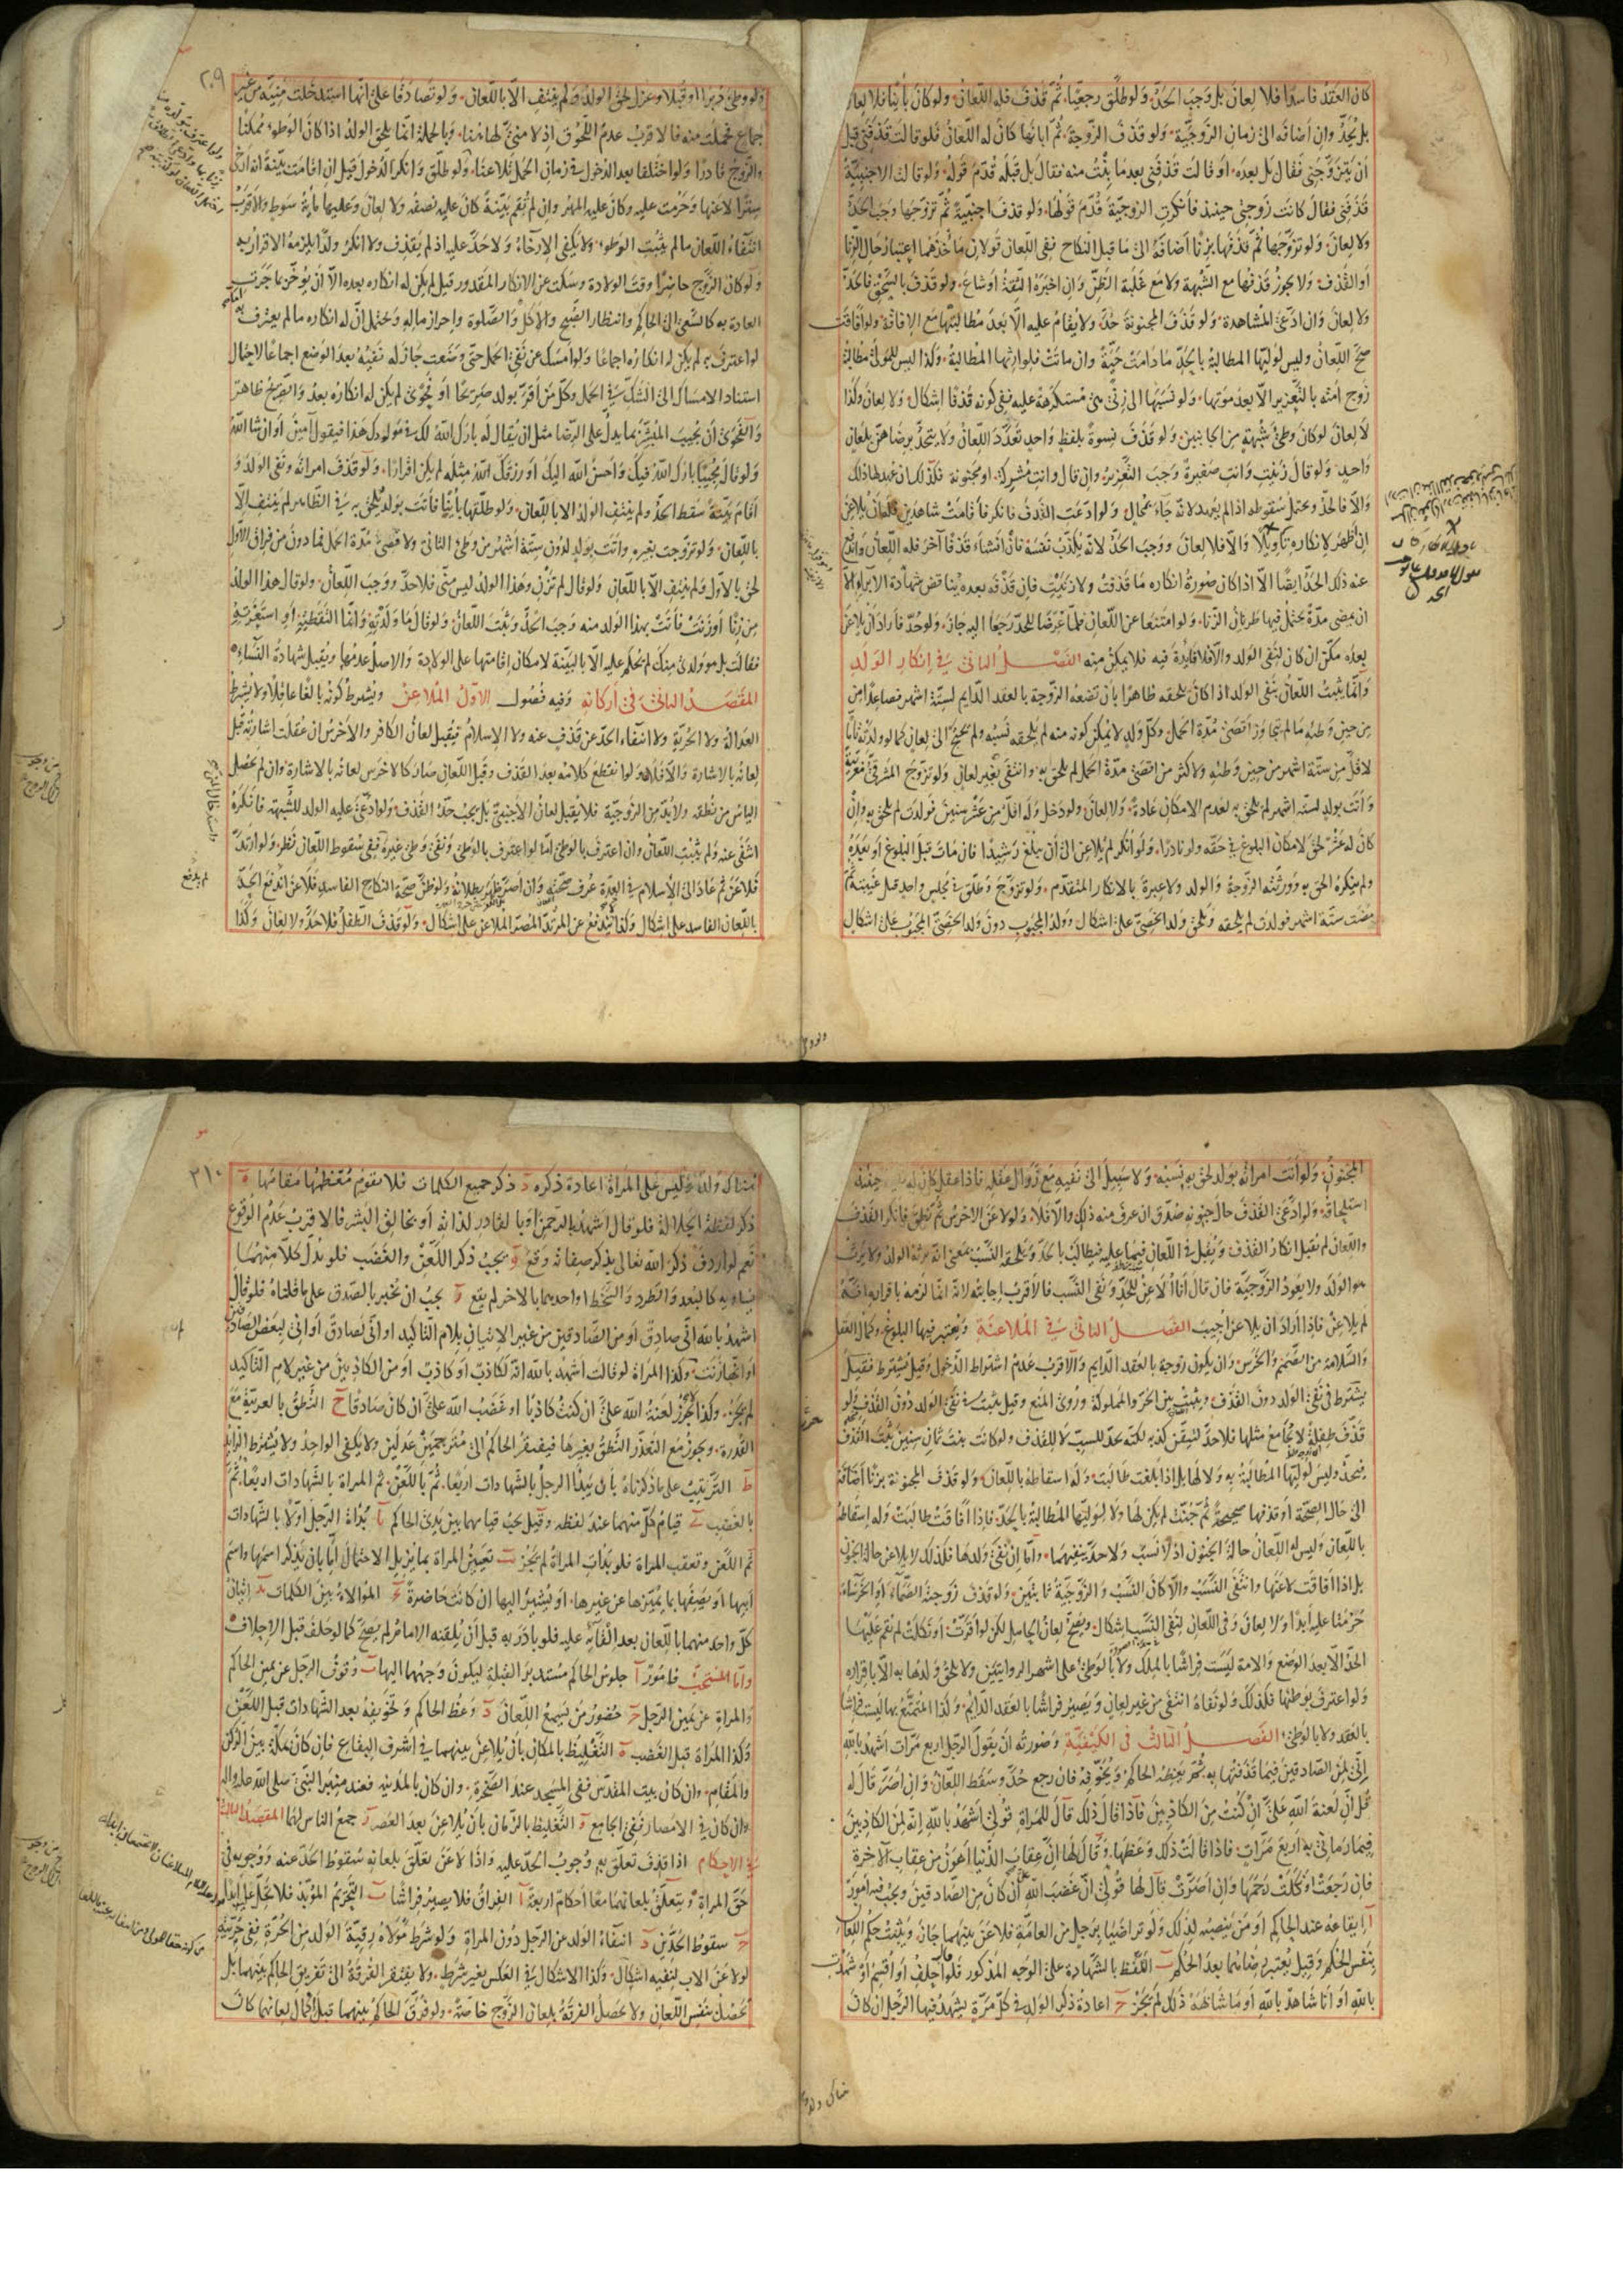 كان العقد فاسدا فلا لعان بل وجب الحد ولو طلق رجعيا ثم قذف فله اللعان ولو كان بائنا فلا لعان
بل يحد وان اضافه الى زمان الزوجية ولو قذف الزوجة ثم ابانها كان له اللعان فلو قالت قذفني قبل
ان يتزوجني فقال بل بعده او قالت قذفني بعدما بنت منه فقال بل قبله قدم قوله ولو قالت الاجنبية
قذفني فقال كانت زوجتي حينئذ فانكرت الزوجية قدم قولها ولو قذف اجنبية ثم تزوجها وجب الحد
ولا لعان ولو تزوجها ثم قذفها بزنا اضافه الى ما قبل النكاح ففي اللعان قولان مأخذهما اعتبار حال الزنا
او القذف ولا يجوز قذفها مع الشبهة ولا مع غلبة الظن وان اخبره الثقة او شاع ولو قذف بالسحق فالحد
ولا لعان وان ادعى المشاهدة ولو قذف المجنونة حد ولا يقام عليه الا بعد مطالبتها مع الافاقة ولو افاقت
صح اللعان وليس لوليها المطالبة بالحد ما دامت حية وان ماتت فلوارثها المطالبة وكذا ليس للمولى مطالبة
زوج امته بالتعزير الا بعد موتها ولو نسبها الى زنى هي مستكرهة عليه ففي كونه قذفا اشكال ولا لعان وكذا
لا لعان لو كان وطئ شبهة من الجانبين ولو قذف نسوة بلفظ واحد تعدد اللعان ولا يتحد برضاهن بلعان
واحد ولو قال زنيت وانت صغيرة وجب التعزير وان قال وانت مشركة او مجنونة فكذلك ان عهد لها ذلك
والا فالحد ويحتمل سقوطه اذا لم يعهد لانه جاء بمحال ولو ادعت القذف فانكر فاقامت شاهدين فله ان يلاعن
ان اظهر لانكاره تأويلا والا فلا لعان ووجب الحد لانه يكذب نفسه فان انشاء قذفا آخر فله اللعان واندفع
عنه ذلك الحد ايضا الا اذا كان صورة انكاره ما قذفت ولا زنيت فان قذفه بعده يناقض شهادة الابراء الا
ان تمضى مدة يحتمل فيها طريان الزنا ولو امتنعا عن اللعان فلما عرضا للحد رجعا اليه جاز ولو حد فاراد ان يلاعن
بعده مكن ان كان لنفى الولد والا فلا فائدة فيه فلا يمكن منه الفصل الثانى فى انكار الولد
وانما يثبت اللعان بنفى الولد اذا كان يلحقه ظاهرا بان تضعه الزوجة بالعقد الدايم لستة اشهر فصاعدا من
من حين وطئه ما لم يتجاوز اقصى مدة الحمل وكل ولد لا يمكن كونه منه لم يلحقه نسبه ولم يحتج الى لعان كما لو ولدته تاما
لاقل من ستة اشهر من حين وطئه ولاكثر من اقصى مدة الحمل لم يلحق به وانتفى بغير لعان ولو تزوج المشرقى مغربية
واتت بولد لستة اشهر لم يلحق به لعدم الامكان عادة ولا لعان ولو دخل وله اقل من عشر سنين فولدت لم يلحق به وان
كان له عشر لحق لامكان البلوغ في حقه ولو نادرا ولو انكر لم يلاعن الى ان يبلغ رشيدا فان مات قبل البلوغ او بعده
ولم ينكره الحق به وورثته الزوجة والولد ولا عبرة بالانكار المتقدم ولو تزوج وطلق في مجلس واحد قبل غيبته ثم
مضت ستة اشهر فولدت لم يلحقه ويلحق ولد الخصى على اشكال وولد المجبوب دون ولد الخصى المجبوب على اشكال
ولو وطئ دبرا او قبلا وعزل لحق الولد ولم ينتف الا باللعان ولو تصادقا على انها استدخلت منيه من غير
جماع فحملت منه فالاقرب عدم اللحوق اذ لا منى لها هنا وبالجملة انما يلحق الولد اذا كان الوطئ ممكنا
والزوج قادرا ولو اختلفا بعد الدخول في زمان الحمل تلاعنا ولو طلق وانكر الدخول قيل ان اقامت بينة انه ارخى
سترا لاعنها وحرمت عليه وكان عليه المهر وان لم تقم بينة كان عليه نصفه ولا لعان وعليها مائة سوط والاقرب
انتفاء اللعان ما لم يثبت الوطئ ولا يكفى الارخاء ولا حد عليه اذ لم يقذف ولا انكر ولدا يلزمه الاقرار به
ولو كان الزوج حاضرا وقت الولادة وسكت عن الانكار المقدور قيل لم يكن له انكاره بعده الا ان يؤخر بما جرت
العادة به كالسعى الى الحاكم وانتظار الصبح والاكل والصلوة واحراز ماله ويحتمل ان له انكاره ما لم يعترف به
لو اعترف به لم يكن له انكاره اجماعا ولو امسك عن نفى الحمل حتى وضعت جاز له نفيه بعد الوضع اجماعا لاحتمال
استناد الامساك الى الشك في الحمل وكل من اقر بولد صريحا او فحوى لم يكن له انكاره بعد والصريح ظاهر
والفحوى ان يجيب المبشر بما يدل على الرضا مثل ان يقال له بارك الله لك في مولودك هذا فيقول آمين او ان شا الله
ولو قال مجيبا بارك الله فيك واحسن الله اليك او رزقك الله مثله لم يكن اقرارا ولو قذف امراته ونفى الولد و
اقام بينة سقط الحد ولم ينتف الولد الا باللعان ولو طلقها بائنا فاتت بولد يلحق به في الظاهر لم ينتف الا
باللعان ولو تزوجت بغيره واتت بولد لدون ستة اشهر من وطئ الثانى ولاقصى مدة الحمل فما دون من فراق الاول
لحق بالاول ولم ينتف الا باللعان ولو قال لم تزن وهذا الولد ليس منى فلا حد ووجب اللعان ولو قال هذا الولد
من زنا او زنت فاتت بهذا الولد منه وجب الحد وثبت اللعان ولو قال ما ولدته وانما التقطته او استعرته
فقالت بل هو ولدى منك لم يحكم عليه الا بالبينة لامكان اقامتها على الولادة والاصل عدمها ويقبل شهادة النساء
المقصد الثانى فى اركانه وفيه فصول الاول الملاعن ويشترط كونه بالغا عاقلا ولا يشترط
العدالة ولا الحرية ولا انتفاء الحد عن قذف عنه ولا الاسلام فيقبل لعان الكافر والاخرس ان عقلت اشارته قبل
لعانه بالاشارة والا فلا ولو انقطع كلامه بعد القذف وقبل اللعان صار كالاخرس لعانه بالاشارة وان لم يحصل
الياس من نطقه ولا بد من الزوجية فلا يقبل لعان الاجنبى بل يجب حد القذف ولو ادعى عليه الولد للشبهة فانكره
انتفى عنه ولم يثبت اللعان وان اعترف بالوطئ اما لو اعترف بالوطئ ونفى وطئ غيره ففى سقوط اللعان نظر ولو ارتد
فلاعن ثم عاد الى الاسلام فى العدة عرف صحته وان اصر ظهر بطلانه ولو ظن صحة النكاح الفاسد فلاعن اندفع الحد
باللعان الفاسد على اشكال وكذا يندفع عن المرتد المصر الملاعن على اشكال ولو قذف الطفل فلا حد ولا لعان وكذا
المجنون ولو اتت امراته بولد لحق به نسبه ولا سبيل الى نفيه مع زوال عقله فاذا عقل كان له نفيه حينئذ
استلحاقه ولو ادعى القذف حال جنونه صدق ان عرف منه ذلك والا فلا ولو لاعن الاخرس ثم نطق فانكر القذف
واللعان لم يقبل انكار القذف ويقبل فى اللعان فيما عليه فيطالب بالحد ويلحقه النسب بمعنى انه يرثه الولد ولا يرث
هو الولد ولا يعود الزوجية فان قال انا الاعن للحد ونفى النسب فالاقرب اجابته لانه انما لزمه باقراره انه
لم يلاعن فاذا اراد ان يلاعن اجيب الفصل الثانى فى الملاعنة ويعتبر فيها البلوغ وكمال العقل
والسلامة من الصمم والخرس وان يكون زوجة بالعقد الدايم والاقرب عدم اشتراط الدخول وقيل يشترط فقيل
يشترط فى نفى الولد دون القذف ويثبت بين الحر والمملوكة وروى المنع وقيل يثبت في نفى الولد دون القذف ولو
قذف طفلة لا يجامع مثلها فلا حد لتيقن كذبه لكنه يعزر للسب لا للقذف ولو كانت بنت ثمان سنين يثبت القذف
فيحد وليس لوليها المطالبة به ولا لها بل اذا بلغت طالبت وله اسقاطه باللعان ولو قذف المجنونة بزنا اضافه
الى حال الصحة او قذفها صحيحة ثم جنت لم يكن لها ولا لوليها المطالبة بالحد فاذا افاقت طالبت وله اسقاطه
باللعان وليس له اللعان حالة الجنون اذ لا نسب ولا حد ينفيهما واما ان نفى ولدها فكذلك لا يلاعن حالة الجنون
بل اذا افاقت لاعنها وانتفى النسب والا كان النسب والزوجية ثابتين ولو قذف زوجته الصماء او الخرساء
حرمتا عليه ابدا ولا لعان وفى اللعان لنفى النسب اشكال ويصح لعان الحامل لكن لو اقرت او نكلت لم يقم عليها
الحد الا بعد الوضع والامة ليست فراشا بالملك ولا بالوطئ على اشهر الروايتين ولا يلحق ولدها به الا باقراره
ولو اعترف بوطئها فكذلك ولو نفاه انتفى من غير لعان ويصير فراشا بالعقد الدايم وكذا المتمتع بها ليست فراشا
بالعقد ولا بالوطئ الفصل الثالث فى الكيفية وصورته ان يقول الرجل اربع مرات اشهد بالله
انى لمن الصادقين فيما قذفتها به ثم يعظه الحاكم ويخوفه فان رجع حد وسقط اللعان وان اصر قال له
قل ان لعنة الله على ان كنت من الكاذبين فاذا قال ذلك قال للمراة قولى اشهد بالله انه لمن الكاذبين
فيما رمانى به اربع مرات فاذا قالت ذلك وعظها وقال لها ان عقاب الدنيا اهون من عقاب الآخرة
فان رجعت او نكلت رجمها وان اصرت قال لها قولى ان غضب الله على ان كان من الصادقين ويجب فيه امور
ا ايقاعه عند الحاكم او من ينصبه لذلك ولو تراضيا برجل من العامة فلاعن بينهما جاز ويثبت حكم اللعان
بنفس الحكم وقيل يعتبر رضاهما بعد الحكم ب التلفظ بالشهادة على الوجه المذكور فلو قال احلف او اقسم او شهدت
بالله او انا شاهد بالله او ما شابهه ذلك لم يجز ج اعادة ذكر الولد في كل مرة يشهد فيها الرجل ان كان
هناك ولد وليس على المراة اعادة ذكره د ذكر جميع الكلمات فلا يقوم معظمها مقامها ه
ذكر لفظة الجلالة فلو قال اشهد بالرحمن او بالقادر لذاته او بخالق البشر فالاقرب عدم الوقوع
نعم لو اردف ذكر الله تعالى بذكر صفاته وقع و يجب ذكر اللعن والغضب فلو بدل كلا منهما
بمساويه كالبعد والطرد والسخط او احدهما بالاخر لم يقع ز يجب ان يخبر بالصدق على ما قلناه فلو قال
اشهد بالله انى صادق او من الصادقين من غير الاتيان بلام التاكيد او انى لصادق او انى لبعض الصادقين
او انها زنت وكذا المراة لو قالت اشهد بالله انه لكاذب او كاذب او من الكاذبين من غير لام التاكيد
لم يجز وكذا لا يجوز لعنة الله على ان كنت كاذبا او غضب الله على ان كان صادقا ح النطق بالعربية مع
القدرة ويجوز مع التعذر النطق بغيرها فيفتقر الحاكم الى مترجمين عدلين ولا يكفى الواحد ولا يشترط الزايد
ط الترتيب على ما ذكرناه بان يبدأ الرجل بالشهادات اربعا ثم باللعن ثم المراة بالشهادات اربعا ثم
بالغضب ى قيام كل منهما عند لفظه وقيل يجب قيامهما بين يدى الحاكم يا بدأة الرجل اولا بالشهادات
ثم اللعن وتعقب المراة فلو بدأت المراة لم يجز يب تعيين المراة بما يزيل الاحتمال اما بان يذكر اسمها واسم
ابيها او يصفها بما يميزها عن غيرها او يشير اليها ان كانت حاضرة يج الموالاة بين الكلمات يد اتيان
كل واحد منهما باللعان بعد القائه عليه فلو بادر به قبل ان يلقنه الامام لم يصح كما لو حلف قبل الاحلاف
واما المستحب فامور ا جلوس الحاكم مستدبر القبلة ليكون وجههما اليها ب وقوف الرجل عن يمين الحاكم
والمراة عن يمين الرجل ج حضور من يسمع اللعان د وعظ الحاكم وتخويفه بعد الشهادات قبل اللعن
وكذا المراة قبل الغضب ه التغليظ بالمكان بان يلاعن بينهما في اشرف البقاع فان كان بمكة بين الركن
والمقام وان كان ببيت المقدس ففى المسجد عند الصخرة وان كان بالمدينة فعند منبر النبى صلى الله عليه واله
وان كان فى الامصار ففى الجامع و التغليظ بالزمان بان يلاعن بعد العصر ز جمع الناس لهما المقصد الثالث
فى الاحكام اذا قذف تعلق به وجوب الحد عليه واذا لاعن تعلق بلعانه سقوط الحد عنه ووجوبه في
حق المراة ويتعلق بلعانهما معا احكام اربعة ا الفراق فلا يصير فراشا ب التحريم المؤبد فلا تحل عليه ابدا
ج سقوط الحدين د انتفاء الولد عن الرجل دون المراة ولو شرط مولاه رقية الولد من الحرة ففى حريته
لو لاعن الاب لنفيه اشكال وكذا الاشكال فى العكس بغير شرط ولا يفتقر الفرقة الى تفريق الحاكم بينهما بل
تحصل بنفس اللعان ولا تحصل الفرقة بلعان الزوج خاصة ولو فرق الحاكم بينهما قبل اكمال لعانهما كان